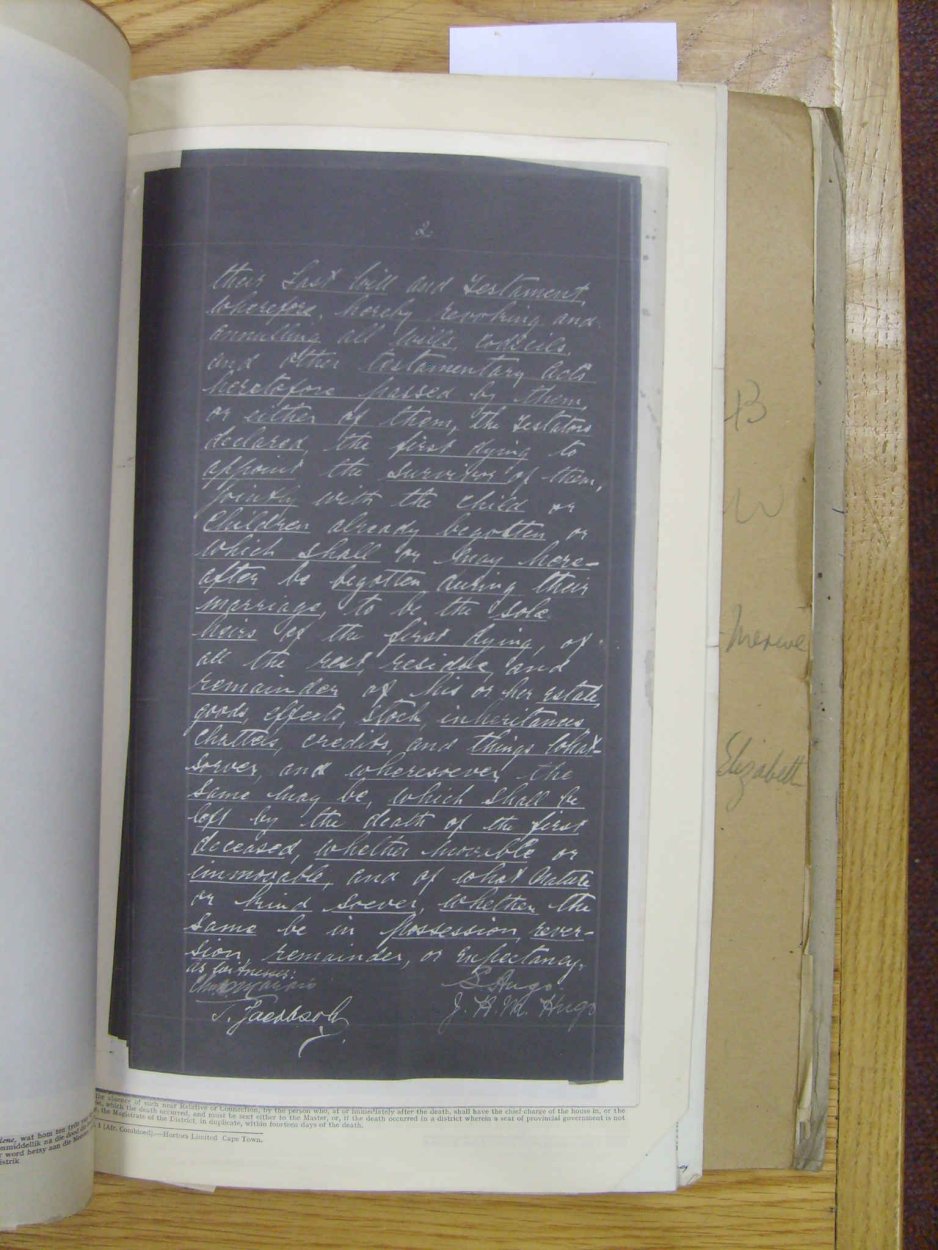 2.
their Last Will and Testament,
wherefore, hereby revoking and
annulling all Wills, Codicils,
and other testamentary acts
heretofore passed by them,
or either of them, The Testators
declared, the first dying to
appoint the Survivor of them,
jointly with the Child or
Children already begotten or
which shall or may here-
after be begotten during their
marriage, to be the Sole
heirs of the first dying, of
all the rest, residue, and
remainder of his or her Estate,
goods, effects, stock, inheritances
Chattels, credits, and things what-
soever, and wheresoever, the
same may be, which shall be
left by the death of the first
deceased, whether movable or
immovable, and of what nature
or kind soever, whether the
same be in possession, rever-
sion, remainder, or expectancy.
As Witnesses:
Marais
S Hugo
J. Jacobsohn
J. H. M. Hugo
B
Merwe
Elizabeth
the absence of such near Relative or Connection, by the person who, at or immediately after the death, shall have the chief charge of the house in, or the
which the death occurred, and must be sent either to the Master, or, if the death occurred in a district wherein a seat of provincial government is not
the Magistrate of the District, in duplicate, within fourteen days of the death.
1 [Afr. Combined].—Hortors Limited Cape Town.
wat hom ten tyde
onmiddellik na die dood
word hetsy aan die Meester